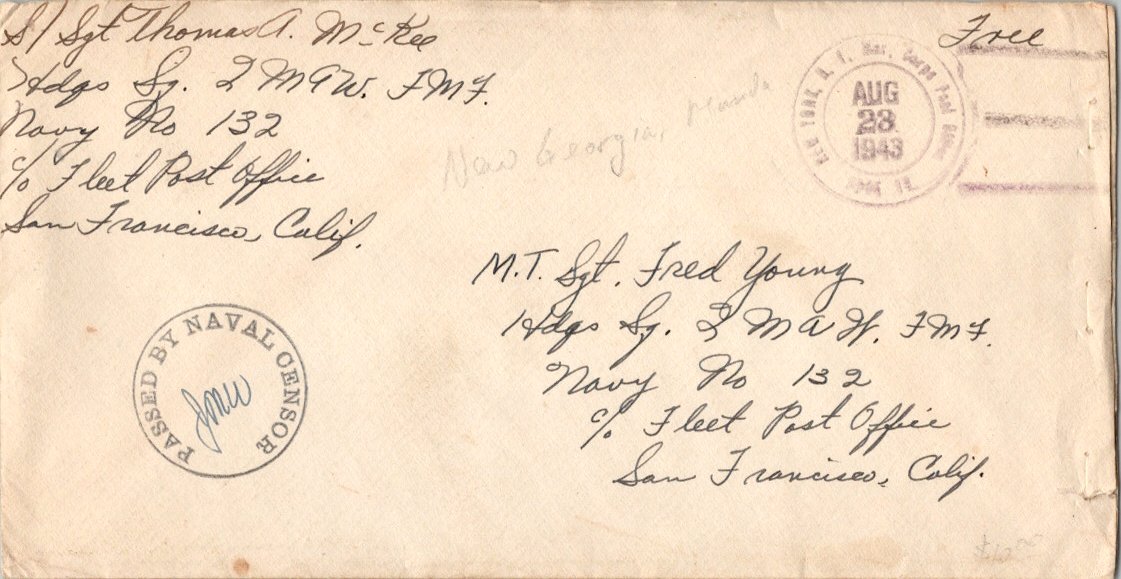 S/Sgt Thomas A. McKee
Hdqs Sq. 2 MAW. FMF.
Navy No 132
c/o Fleet Post Office
San Francisco, Calif.
Free
NEW YORK, N. Y. Mar. Corps Post Office
AUG
23
1943
New Georgia, Munda
M.T. Sgt. Fred Young
Hdqs Sq. 2 MAW. FMF.
Navy No 132
c/o Fleet Post Office
San Francisco, Calif.
PASSED BY NAVAL CENSOR
JMW